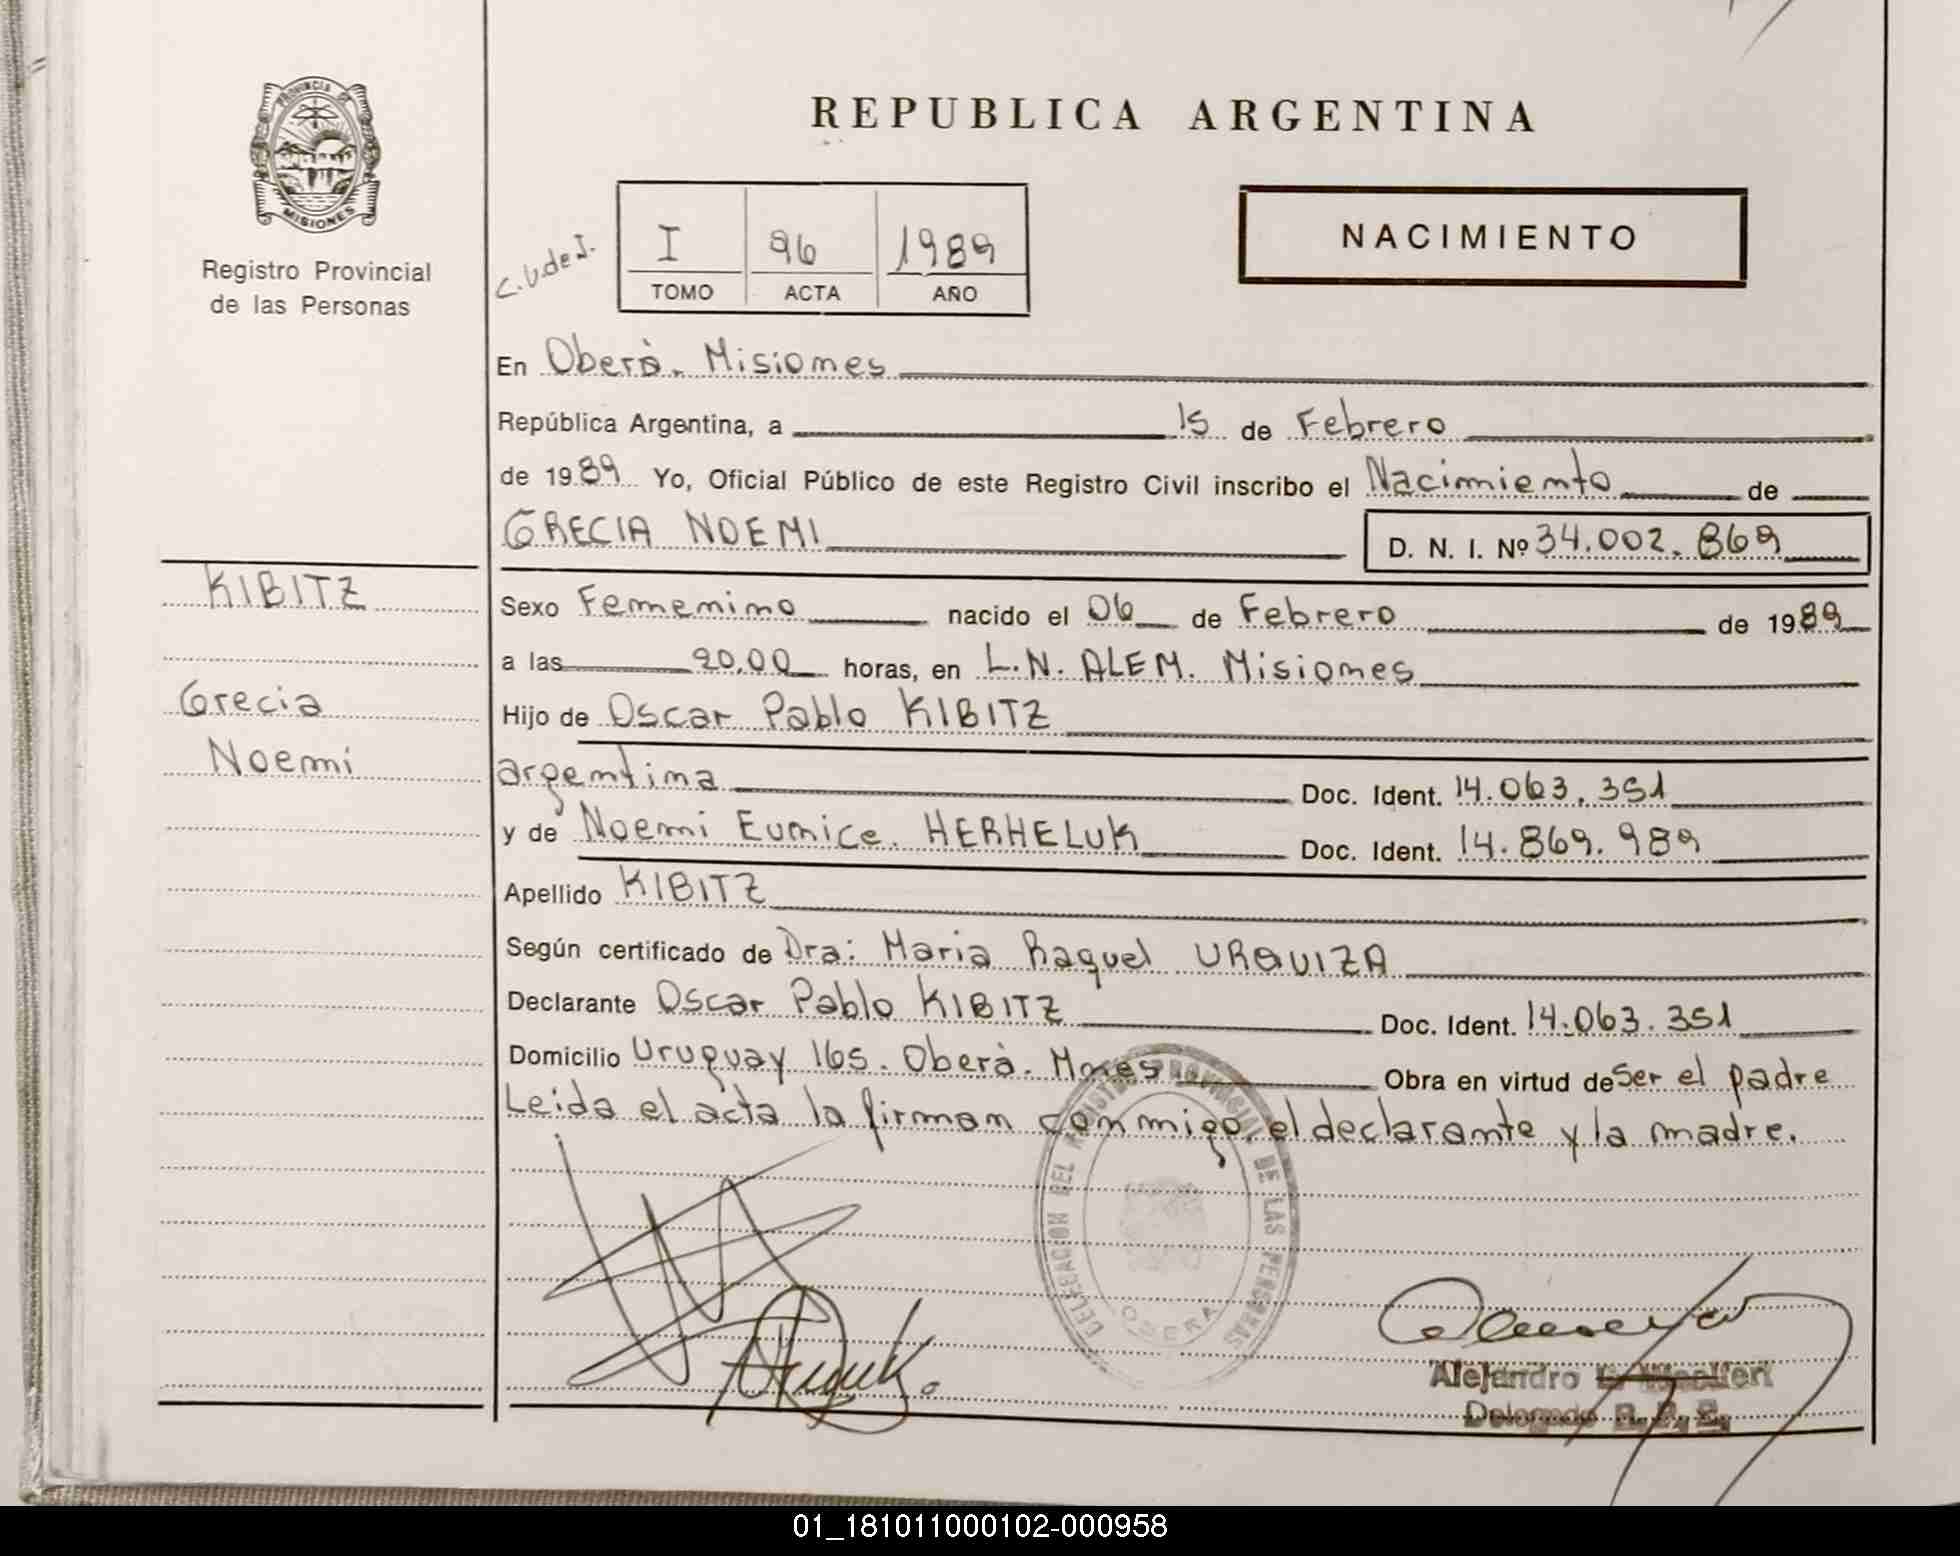 PROVINCIA DE
MISIONES
Registro Provincial
de las Personas
REPUBLICA ARGENTINA
NACIMIENTO
C.U.de I.
I 96 1989
TOMO ACTA AÑO
En Oberà. Misiones
República Argentina, a 15 de Febrero
de 1989 Yo, Oficial Público de este Registro Civil inscribo el Nacimiento de
GRECIA NOEMI D. N. I. Nº 34.002.869
KIBITZ
Grecia
Noemi
Sexo Femenino nacido el 06 de Febrero de 1989
a las 20,00 horas, en L.N. ALEM. Misiones
Hijo de Oscar Pablo KIBITZ
argentina Doc. Ident. 14.063.351
y de Noemi Eunice. HERHELUK Doc. Ident. 14.869.989
Apellido KIBITZ
Según certificado de Dra: Maria Raquel URQUIZA
Declarante Oscar Pablo KIBITZ Doc. Ident. 14.063.351
Domicilio Uruguay 165. Oberà. Mnes Obra en virtud de Ser el padre
Leida el acta la firman conmigo, el declarante y la madre.
DELEGACION DEL REGISTRO PROVINCIAL DE LAS PERSONAS
OBERA
Alejandro
Delegado R. P. P.
01_181011000102-000958